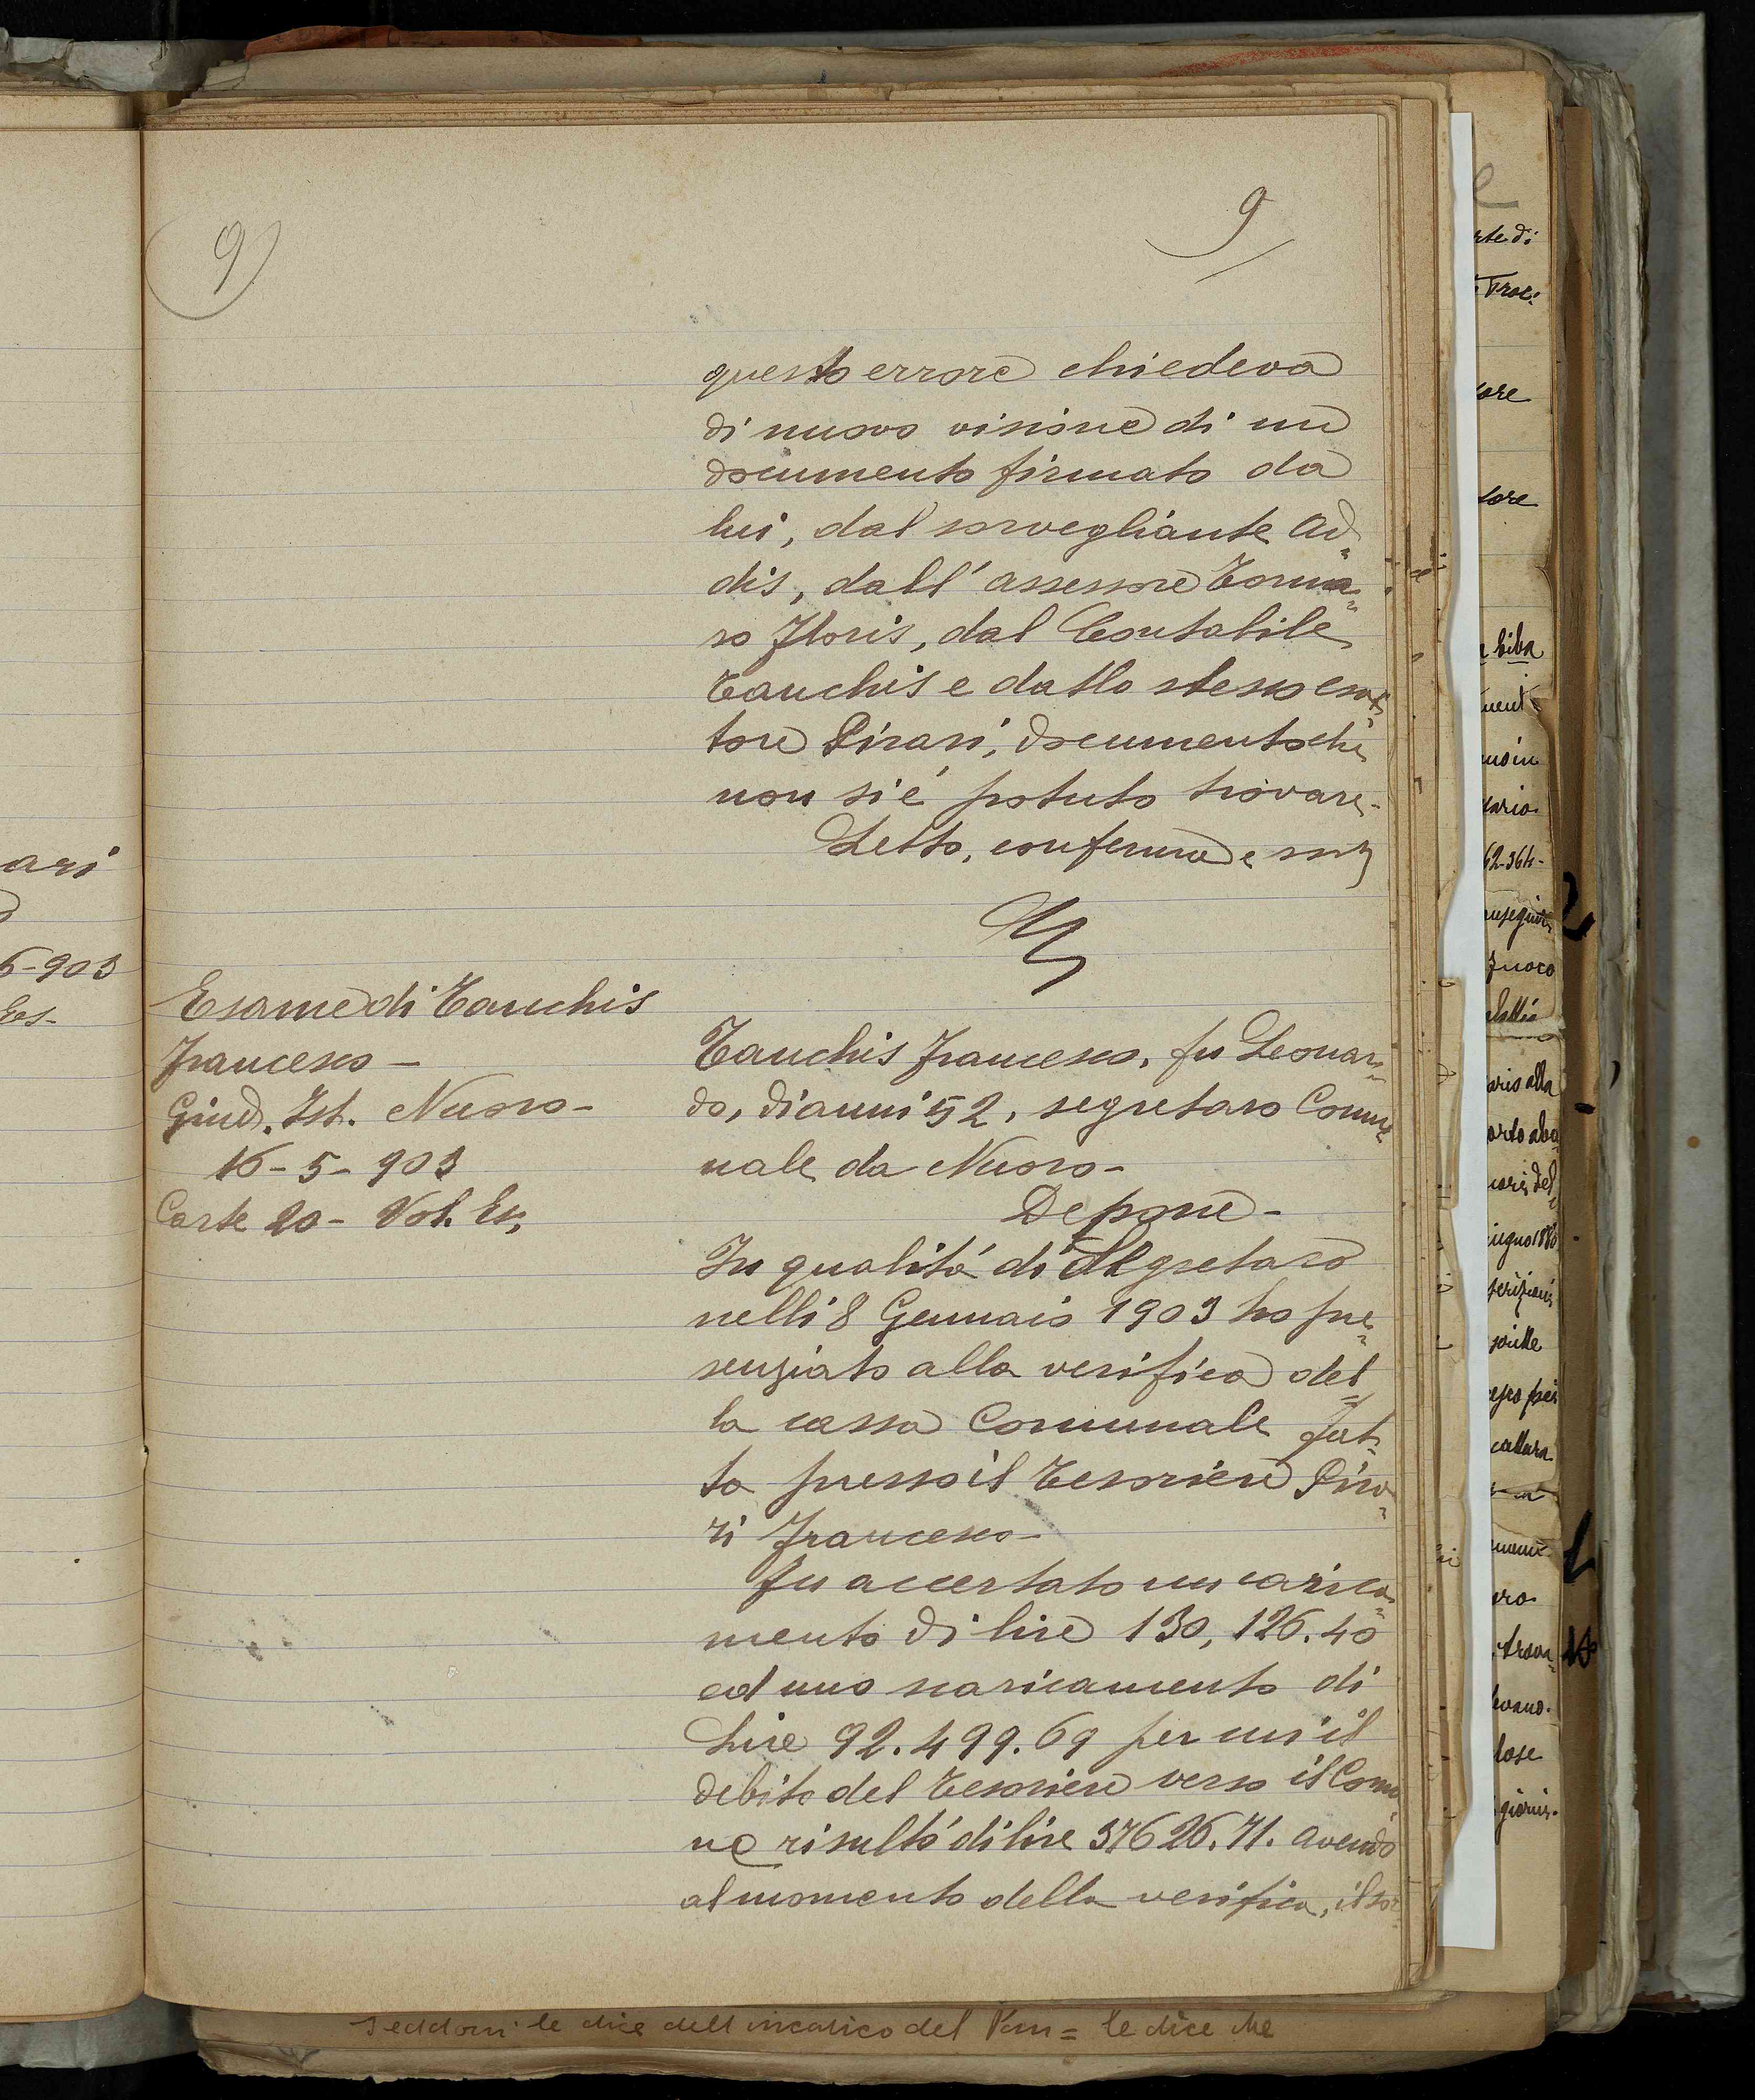 9
9
questo errore chiedeva
di nuovo visione di un
documento firmato da
lui, dal sorvegliante Ad=
dis, dall' assessore Toma=
so Floris, dal Contabile
Tanchis e dallo stesso esat=
tore Pirari, documento che
non si é potuto trovare-
Letto, conferma e
Esame di Tanchis
Francesco-
Giud. Ist. Nuoro-
16-5-903
Carte 20- Vol. Es.
Tanchis Francesco, fu Leonar=
do, di anni 52, segretaro Comu
nale da Nuoro-
Depone-
In qualitá di Segretaro
nelli 8 Gennaio 1903 ho pre=
senziato alla verifica del=
la cassa Comunale fat=
ta presso il Tesoriere Pira=
ri Francesco-
Fu accertato un carica=
mento di lire 130,126.40
ed uno scaricamento di
Lire 92.499.69 per cui il
debito del Tesoriere verso il Comu
ne risultó di lire 37626.71. Avendo
al momento della verifica, il sor=
ari
6-903
Es-
rte di
ore
tore
tario
62-364-
Fuoco
aris alla
iugno 1880
lose
le dice dell'incarico del = le dice che